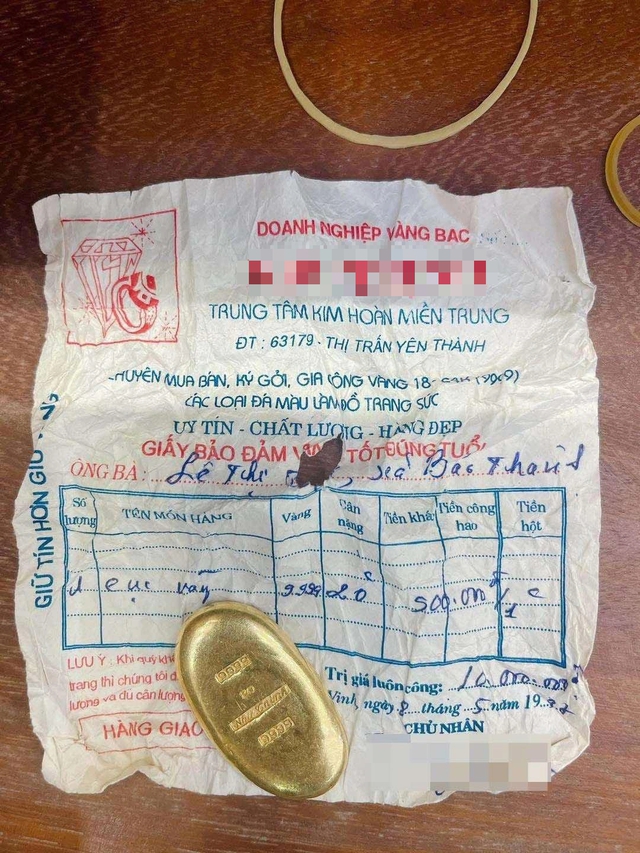 DOANH NGHIỆP VÀNG BẠC
TRUNG TÂM KIM HOÀN MIỀN TRUNG
ĐT : 63179 - THỊ TRẤN YÊN THÀNH
CHUYÊN MUA BÁN, KÝ GỞI, GIA CÔNG VÀNG 18 -
CÁC LOẠI ĐÁ MÀU LÀM ĐỒ TRANG SỨC
UY TÍN - CHẤT LƯỢNG - HÀNG ĐẸP
GIẤY BẢO ĐẢM VÀNG TỐT ĐÚNG TUỔI
ÔNG BÀ : Lê Thị
GIỮ TÍN HƠN GIỮ VÀNG
Số lượng
TÊN MÓN HÀNG
Vàng
Cân nặng
Tiền khấu
Tiền công hao
Tiền hột
1 cục vàng 9.999 20 500.000
LƯU Ý : Khi quý khách
trang thì chúng tôi
lượng và dư cân lượng
HÀNG GIAO
Trị giá luôn công: 10.000.000
Vinh, ngày 8 tháng 5 năm 19
CHỦ NHÂN
9999
9999